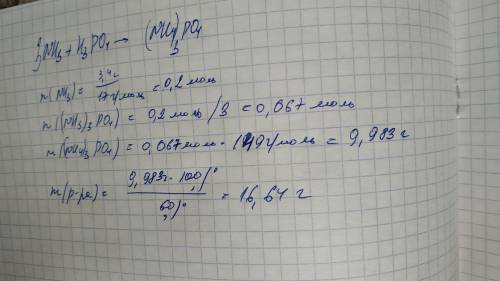 3NH3 + H3PO4 → (NH4)3PO4
n(NH3) = 3,4г / 17г/моль = 0,2 моль
n((NH4)3PO4) = 0,2 моль / 3 = 0,067 моль
m((NH4)3PO4) = 0,067 моль · 149 г/моль = 9,983 г
m(р-ра) = 9,983г · 100% / 60% = 16,64 г